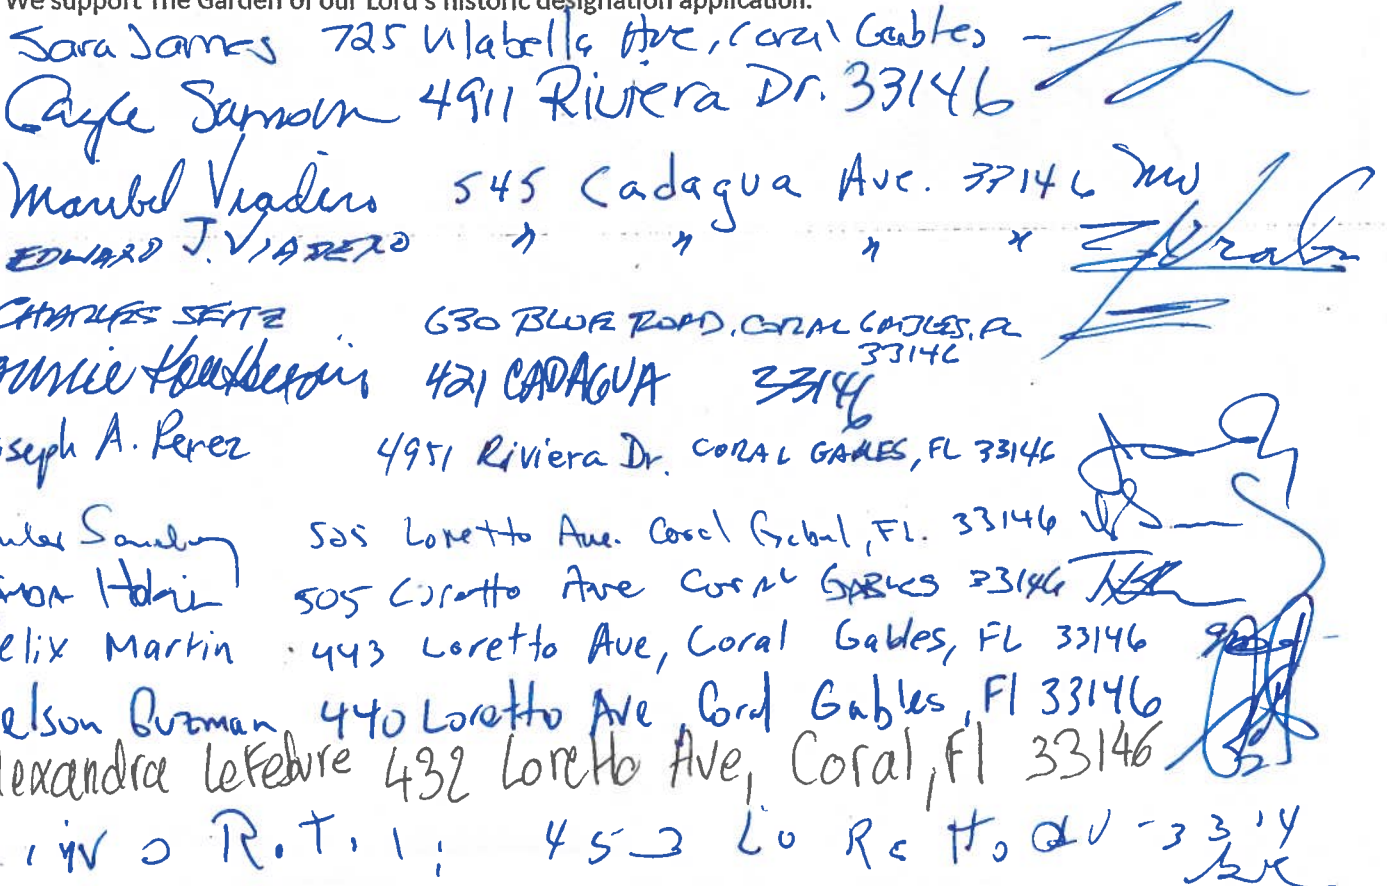 We support The Garden of our Lord's historic designation application.
Sara James 725 Ulabella Ave, Coral Gables -
Gayle 4911 Riviera Dr. 33146
Maribel Viadero 545 Cadagua Ave. 33146 MV
EDWARD J. VIADERO " " " "
CHARLES SEITZ 630 BLUE ROAD, CORAL GABLES, FL
33146
421 CADAGUA 33146
seph A. Perez 4951 Riviera Dr. CORAL GABLES, FL 33146
505 Loretto Ave. Coral , FL. 33146
505 Loretto Ave CORAL GABLES 33146
elix Martin 443 Loretto Ave, Coral Gables, FL 33146
elson Guzman 440 Loretto Ave, Coral Gables, Fl 33146
lexandra Lefebvre 432 Loretto Ave, Coral, Fl 33146
453 LoRetto av - 3314